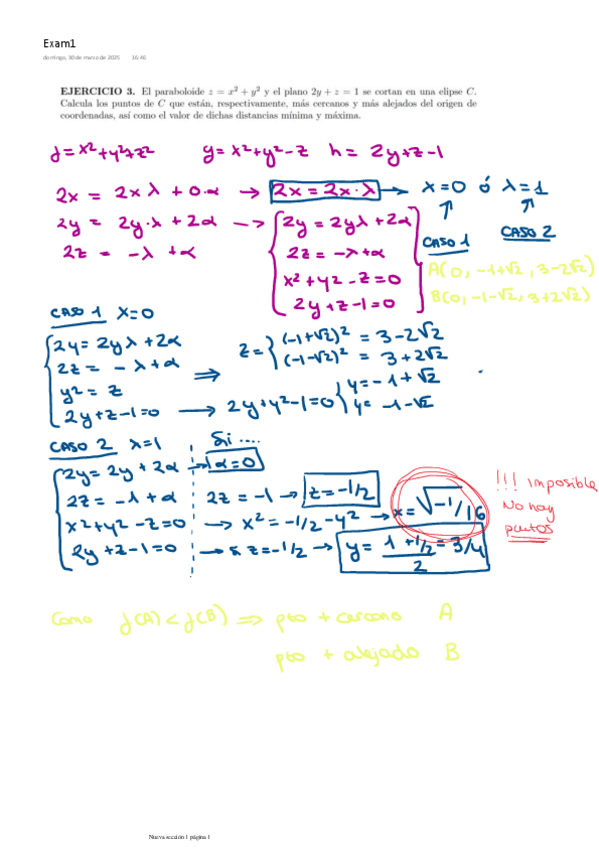 Exam1
domingo, 30 de marzo de 2025 16:46
EJERCICIO 3. El paraboloide z = x² + y² y el plano 2y + z = 1 se cortan en una elipse C.
Calcula los puntos de C que están, respectivamente, más cercanos y más alejados del origen de
coordenadas, así como el valor de dichas distancias mínima y máxima.
f = x²+y²+z² g = x²+y²-z h = 2y+z-1
2x = 2xλ + 0·α → 2x = 2x·λ → x=0 ó λ=1
2y = 2y·λ + 2α → 2y = 2yλ + 2α
CASO 1 CASO 2
2z = -λ + α 2z = -λ+α
x²+y²-z=0
2y+z-1=0
A(0, -1+√2, 3-2√2)
B(0, -1-√2, 3+2√2)
CASO 1 x=0
2y = 2yλ+2α
2z = -λ+α
y² = z
2y+z-1=0 → 2y+y²-1=0 y=-1+√2
y=-1-√2
⇒ z = (-1+√2)² = 3-2√2
(-1-√2)² = 3+2√2
CASO 2 λ=1 Si ....
2y = 2y + 2α → α=0
2z = -λ + α 2z = -1 → z=-1/2
x²+y²-z=0 → x² = -1/2-y² → x=√-1/16
2y+z-1=0 → si z=-1/2 → y = 1+1/2 / 2 = 3/4
!!! Imposible
No hay
puntos
Como f(A) < f(B) ⇒ pto + cercano A
pto + alejado B
Nueva sección 1 página 1